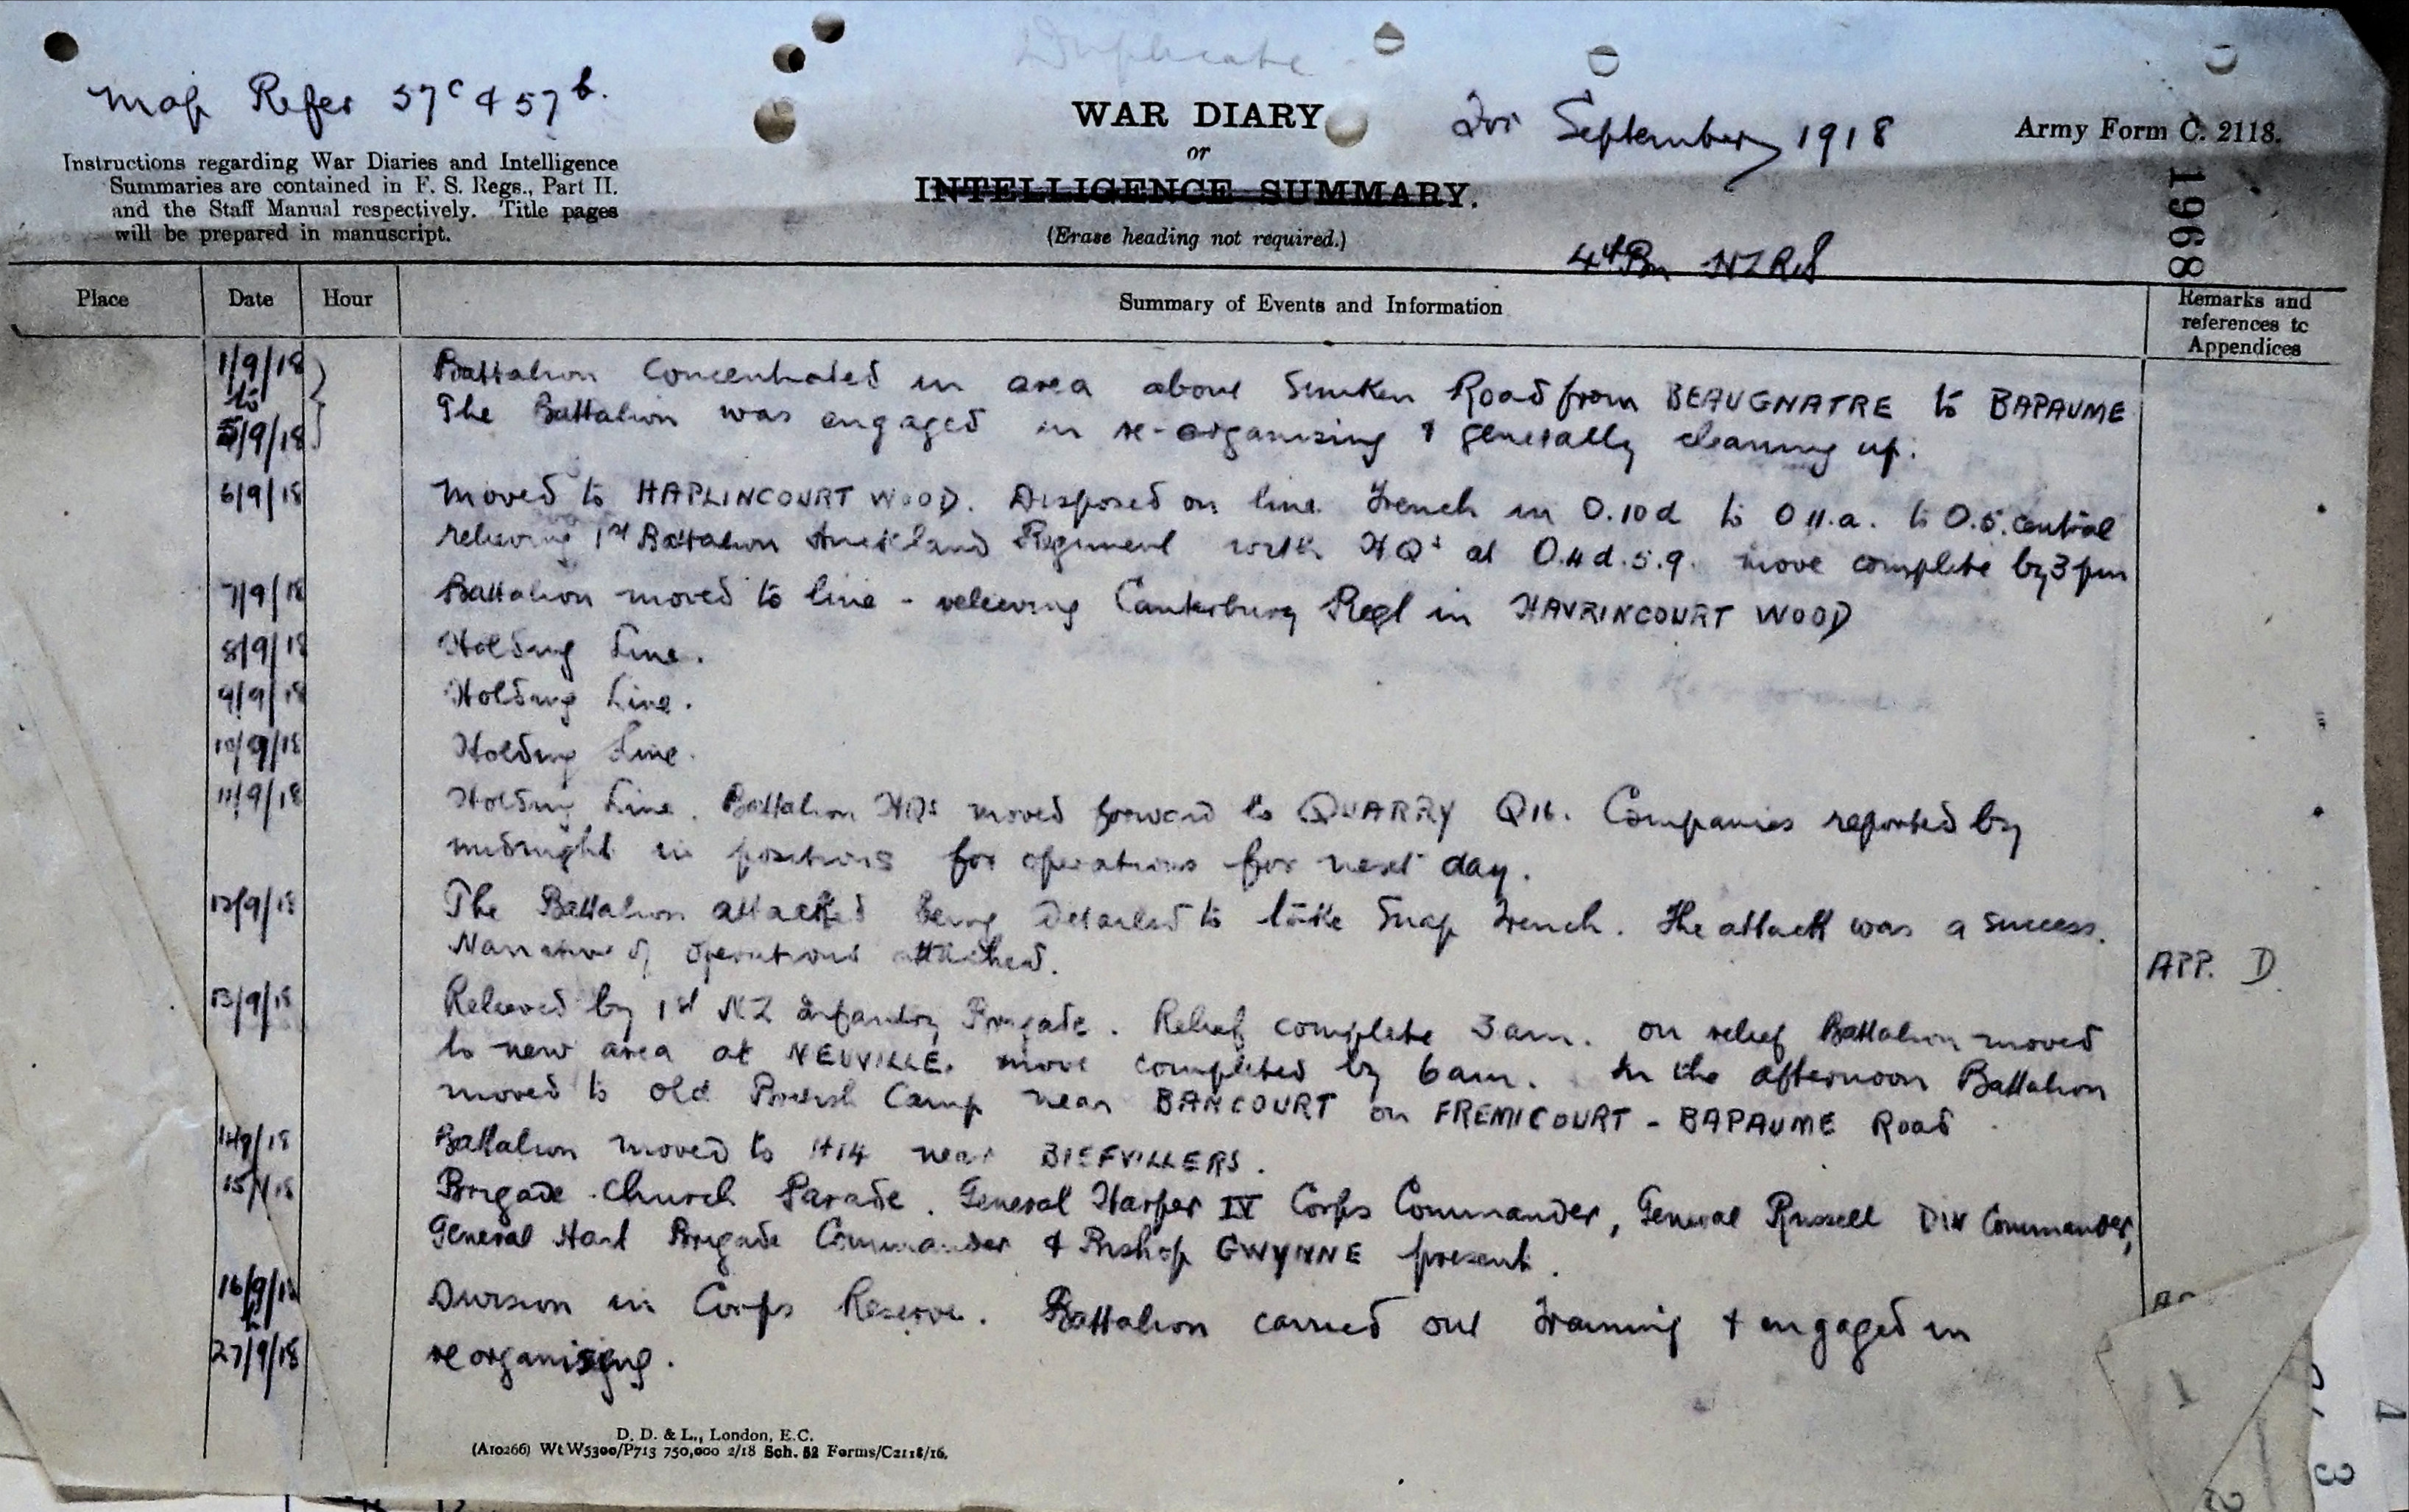 Duplicate
Map Refer 57c & 57b.
WAR DIARY
For September 1918
Army Form C. 2118.
or
INTELLIGENCE SUMMARY.
(Erase heading not required.)
Instructions regarding War Diaries and Intelligence
Summaries are contained in F. S. Regs., Part II.
and the Staff Manual respectively. Title pages
will be prepared in manuscript.
1968
4th Bn NZRB
Place Date Hour Summary of Events and Information Remarks and
references to
Appendices
1/9/18 Battalion Concentrated in area above Sunken Road from BEAUGNATRE to BAPAUME
to The Battalion was engaged in re-organising & generally cleaning up.
5/9/18
6/9/18 Moved to HAPLINCOURT WOOD. Disposed on line Trench in O.10d to O11.a. to O.5.central
relieving 1st Battalion Auckland Regiment with HQs at O.11d.5.9. move complete by 3pm
7/9/18 Battalion moved to line - relieving Canterbury Regt in HAVRINCOURT WOOD
8/9/18 Holding Line.
9/9/18 Holding Line.
10/9/18 Holding Line.
11/9/18 Holding Line. Battalion HQs moved forward to QUARRY Q16. Companies reported by
midnight in positions for operations for next day.
12/9/18 The Battalion attacked being Detailed to take Snap Trench. The attack was a success.
Narrative of operations attached. APP. D.
13/9/18 Relieved by 1st NZ Infantry Brigade. Relief complete 3am. On relief Battalion moved
to new area at NEUVILLE. move completed by 6am. In the afternoon Battalion
moved to old British Camp near BANCOURT on FREMICOURT - BAPAUME Road.
14/9/18 Battalion moved to H14 near BIEFVILLERS.
15/9/18 Brigade Church Parade. General Harper IV Corps Commander, General Russell Div Commander,
General Hart Brigade Commander & Bishop GWYNNE present.
16/9/18 Division in Corps Reserve. Battalion carried out Training & engaged in
to
27/9/18 reorganising.
D. D. & L., London, E.C.
(A10266) Wt W5300/P713 750,000 2/18 Sch. 52 Forms/C2118/16.